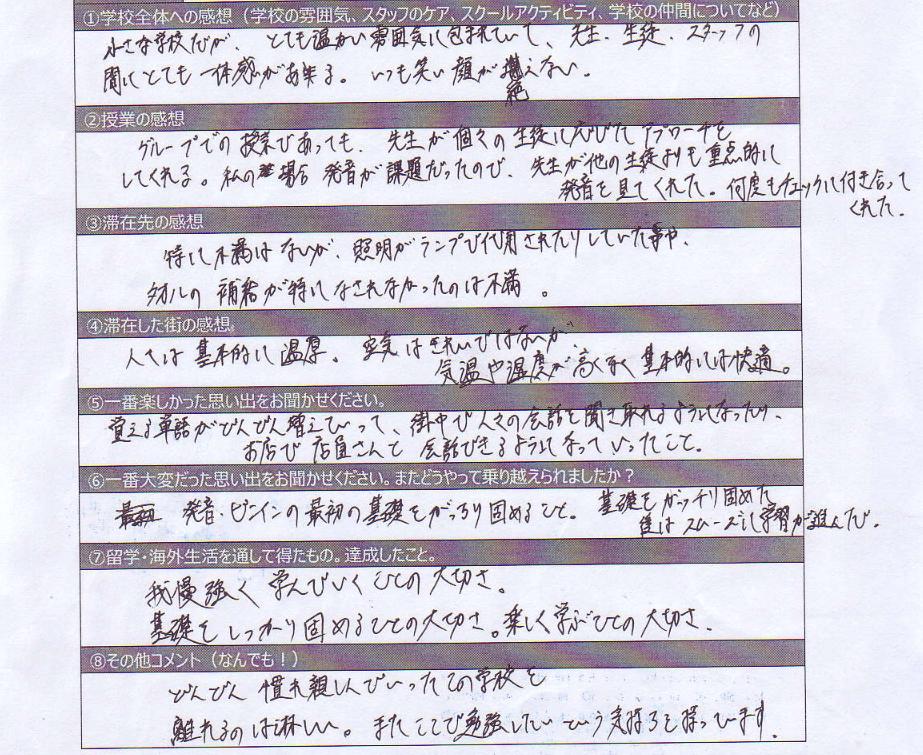 ①学校全体への感想（学校の雰囲気、スタッフのケア、スクールアクティビティ、学校の仲間についてなど）
小さな学校だが、とても温かい雰囲気に包まれていて、先生、生徒、スタッフの
間にとても一体感がある。いつも笑い顔が絶えない。
②授業の感想
グループでの授業であっても、先生が個々の生徒に応じたアプローチを
してくれる。私の場合 発音が課題だったので、先生が他の生徒よりも重点的に
発音を見てくれた。何度もチェックに付き合って
くれた。
③滞在先の感想
特に不満はないが、照明がランプで代用されたりしていた事や、
タオルの補給が特になされなかったのは不満。
④滞在した街の感想。
人々は基本的に温厚。空気はきれいではないが
気温や湿度が高くなく基本的には快適。
⑤一番楽しかった思い出をお聞かせください。
覚える単語がどんどん増えていって、街中で人々の会話を聞き取れるようになったり、
お店で店員さんと会話できるようになっていったこと。
⑥一番大変だった思い出をお聞かせください。またどうやって乗り越えられましたか？
発音・ピンインの最初の基礎をがっちり固めること。基礎をがっちり固めた
後はスムーズに学習が進んだ。
⑦留学・海外生活を通して得たもの。達成したこと。
我慢強く学んでいくことの大切さ。
基礎をしっかり固めることの大切さ。楽しく学ぶことの大切さ。
⑧その他コメント（なんでも！）
どんどん慣れ親しんでいったこの学校を
離れるのは淋しい。またここで勉強したいという気持ちを持っています。